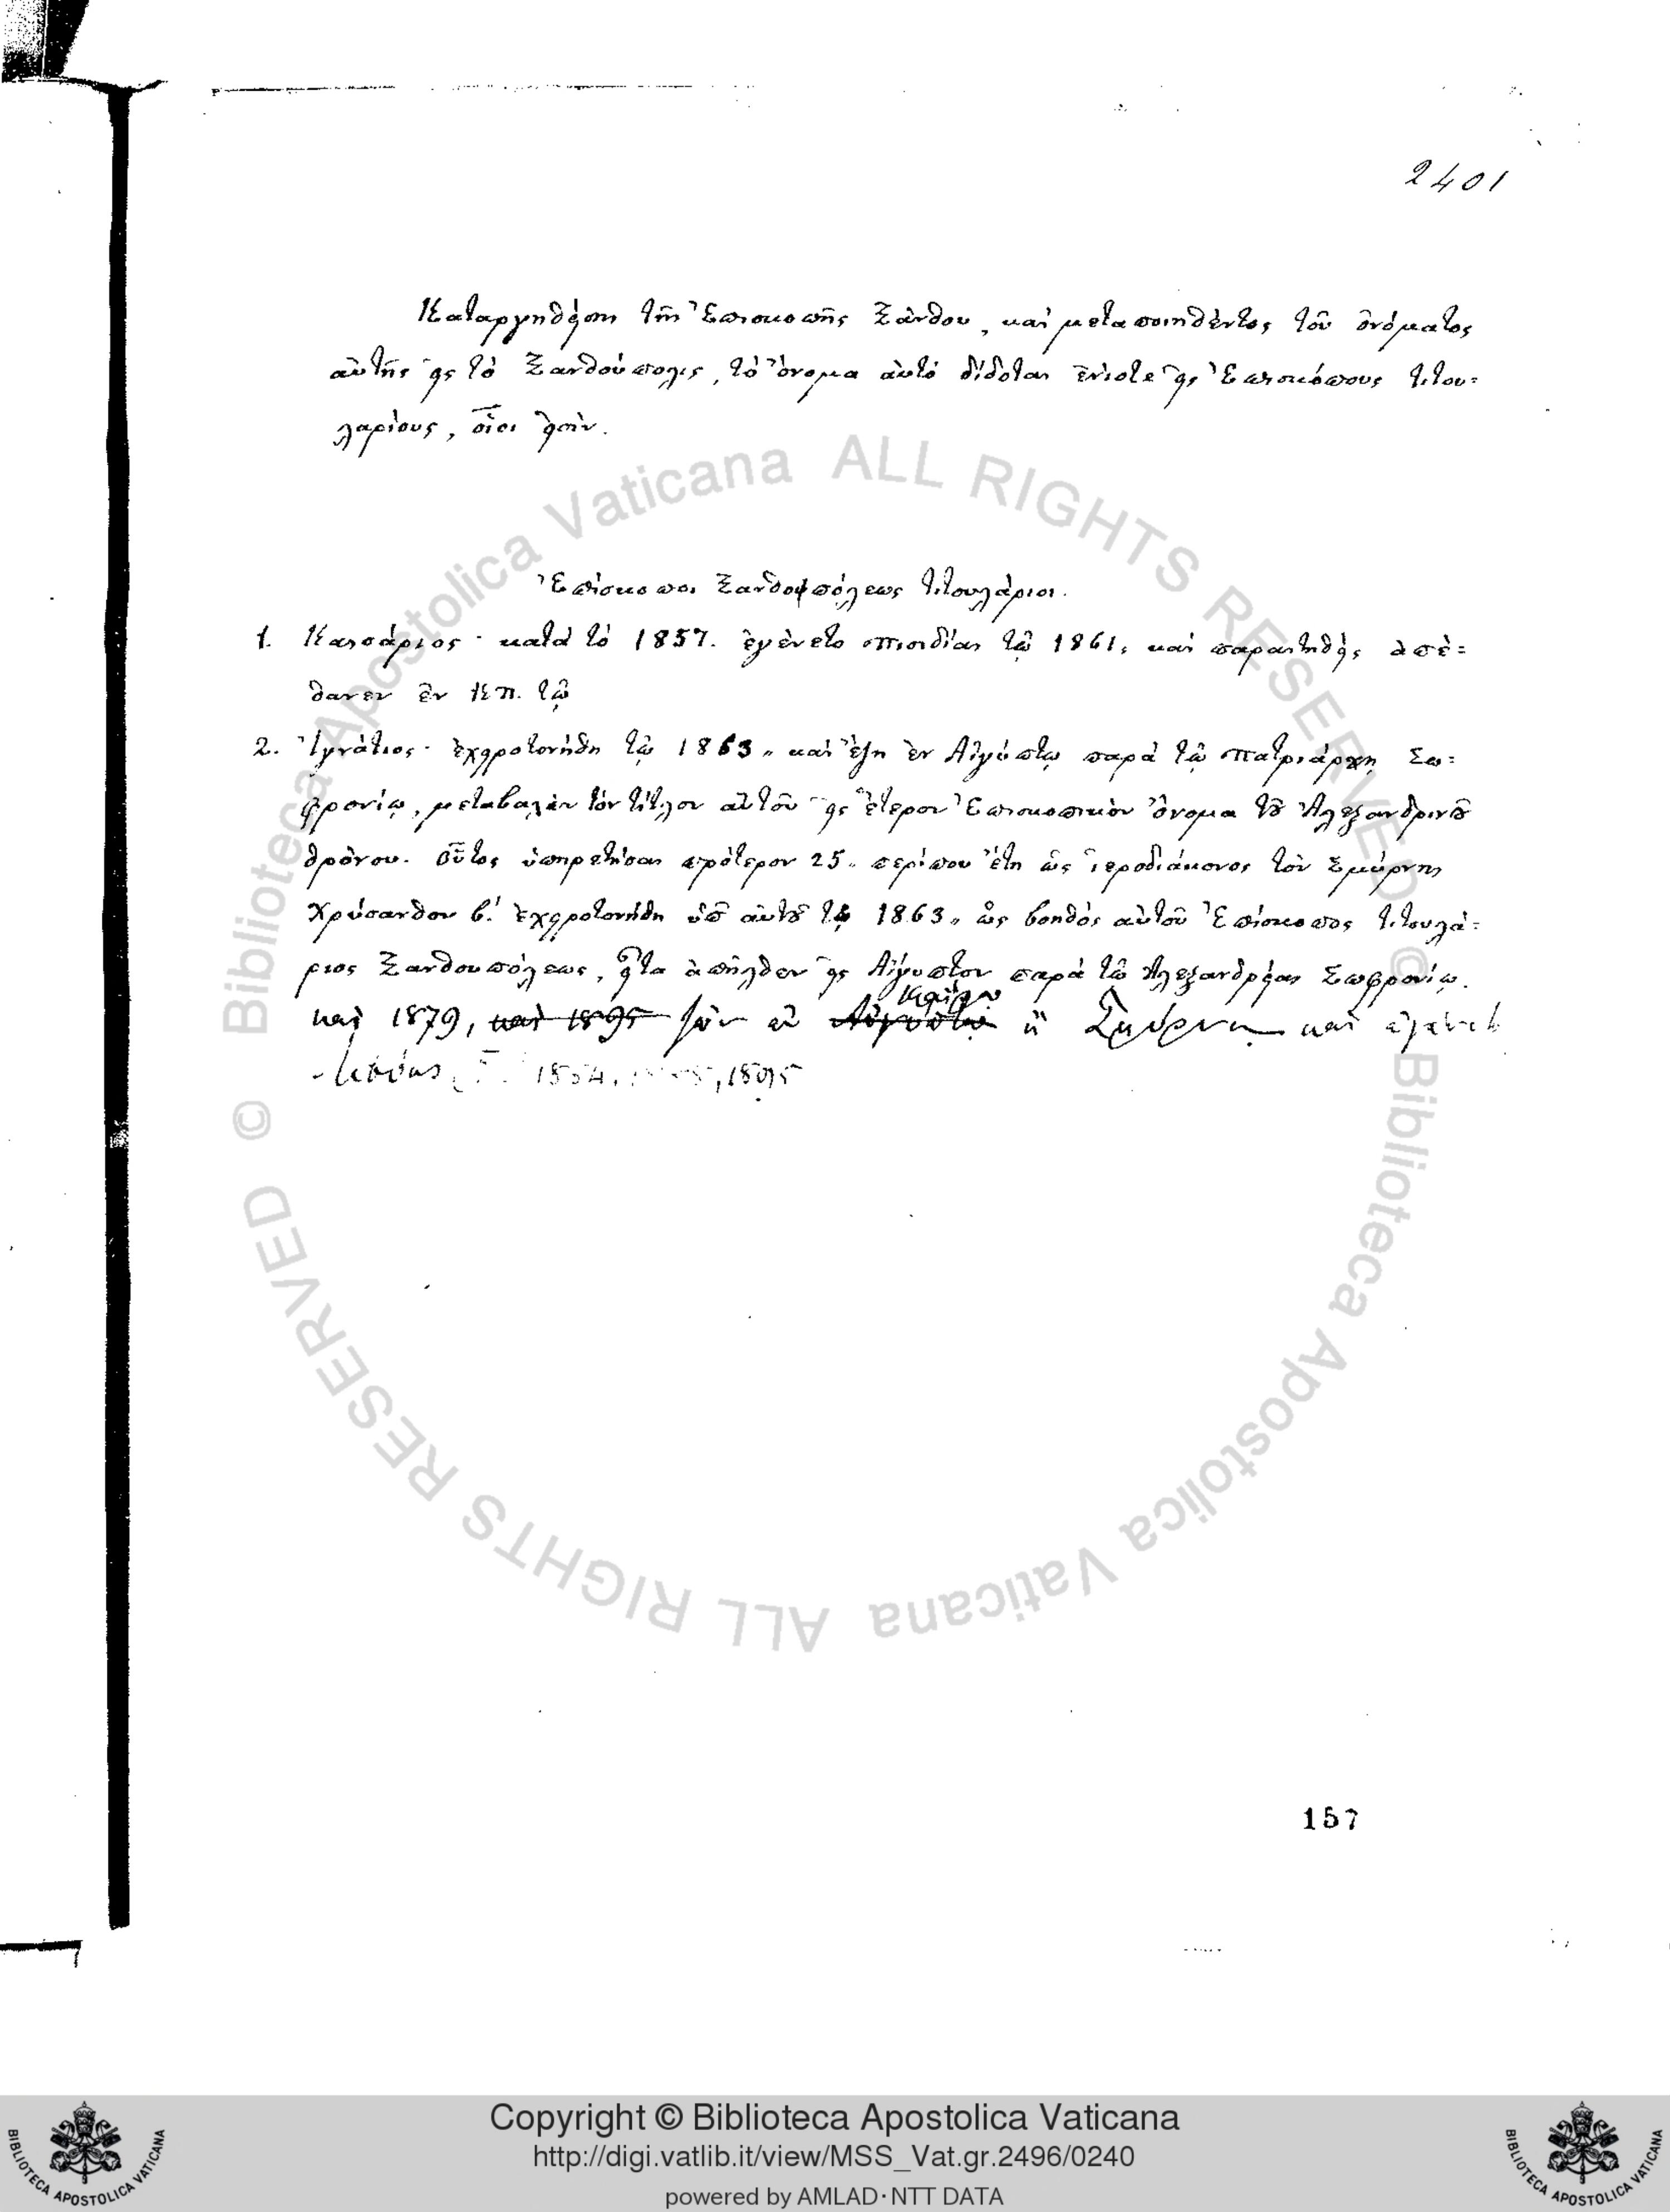 2401
Καταργηθείσης τῆς Ἐπισκοπῆς Ξάνθου, καὶ μεταποιηθέντος τοῦ ὀνόματος
αὐτῆς εἰς τὸ Ξανθούπολις, τὸ ὄνομα αὐτὸ δίδοται ἐνίοτε εἰς Ἐπισκόπους τιτου=
λαρίους, οἷοι εἰσὶν.
Ἐπίσκοποι Ξανθουπόλεως τιτουλάριοι.
1. Καισάριος · κατὰ τὸ 1857. ἐγένετο Πισιδίας τῷ 1861, καὶ παραιτηθεὶς ἀπέ=
θανεν ἐν ΚΠ. τῷ
2. Ἰγνάτιος · ἐχειροτονήθη τῷ 1863,, καὶ ἔζη ἐν Αἰγύπτῳ παρὰ τῷ Πατριάρχῃ Σω=
φρονίῳ, μεταβαλὼν τὸν τίτλον αὐτοῦ εἰς ἕτερον Ἐπισκοπικὸν ὄνομα τοῦ Ἀλεξανδρινοῦ
θρόνου. οὗτος ὑπηρετήσας πρότερον 25,, περίπου ἔτη ὡς ἱεροδιάκονος τὸν Σμύρνης
Χρύσανθον β.' ἐχειροτονήθη ὑπ' αὐτοῦ τῷ 1863,, ὡς βοηθὸς αὐτοῦ Ἐπίσκοπος τιτουλά=
ριος Ξανθουπόλεως, εἶτα ἀπῆλθεν εἰς Αἴγυπτον παρὰ τῷ Ἀλεξανδρείας Σωφρονίῳ.
καὶ 1879, καὶ 1895 ζῶν ἐν Αἰγύπτῳ Καΐρῳ ἢ Σμύρνῃ καὶ
1895
157
© Biblioteca Apostolica Vaticana ALL RIGHTS RESERVED
© Biblioteca Apostolica Vaticana ALL RIGHTS RESERVED
Copyright © Biblioteca Apostolica Vaticana
http://digi.vatlib.it/view/MSS_Vat.gr.2496/0240
powered by AMLAD·NTT DATA
BIBLIOTECA APOSTOLICA VATICANA
BIBLIOTECA APOSTOLICA VATICANA